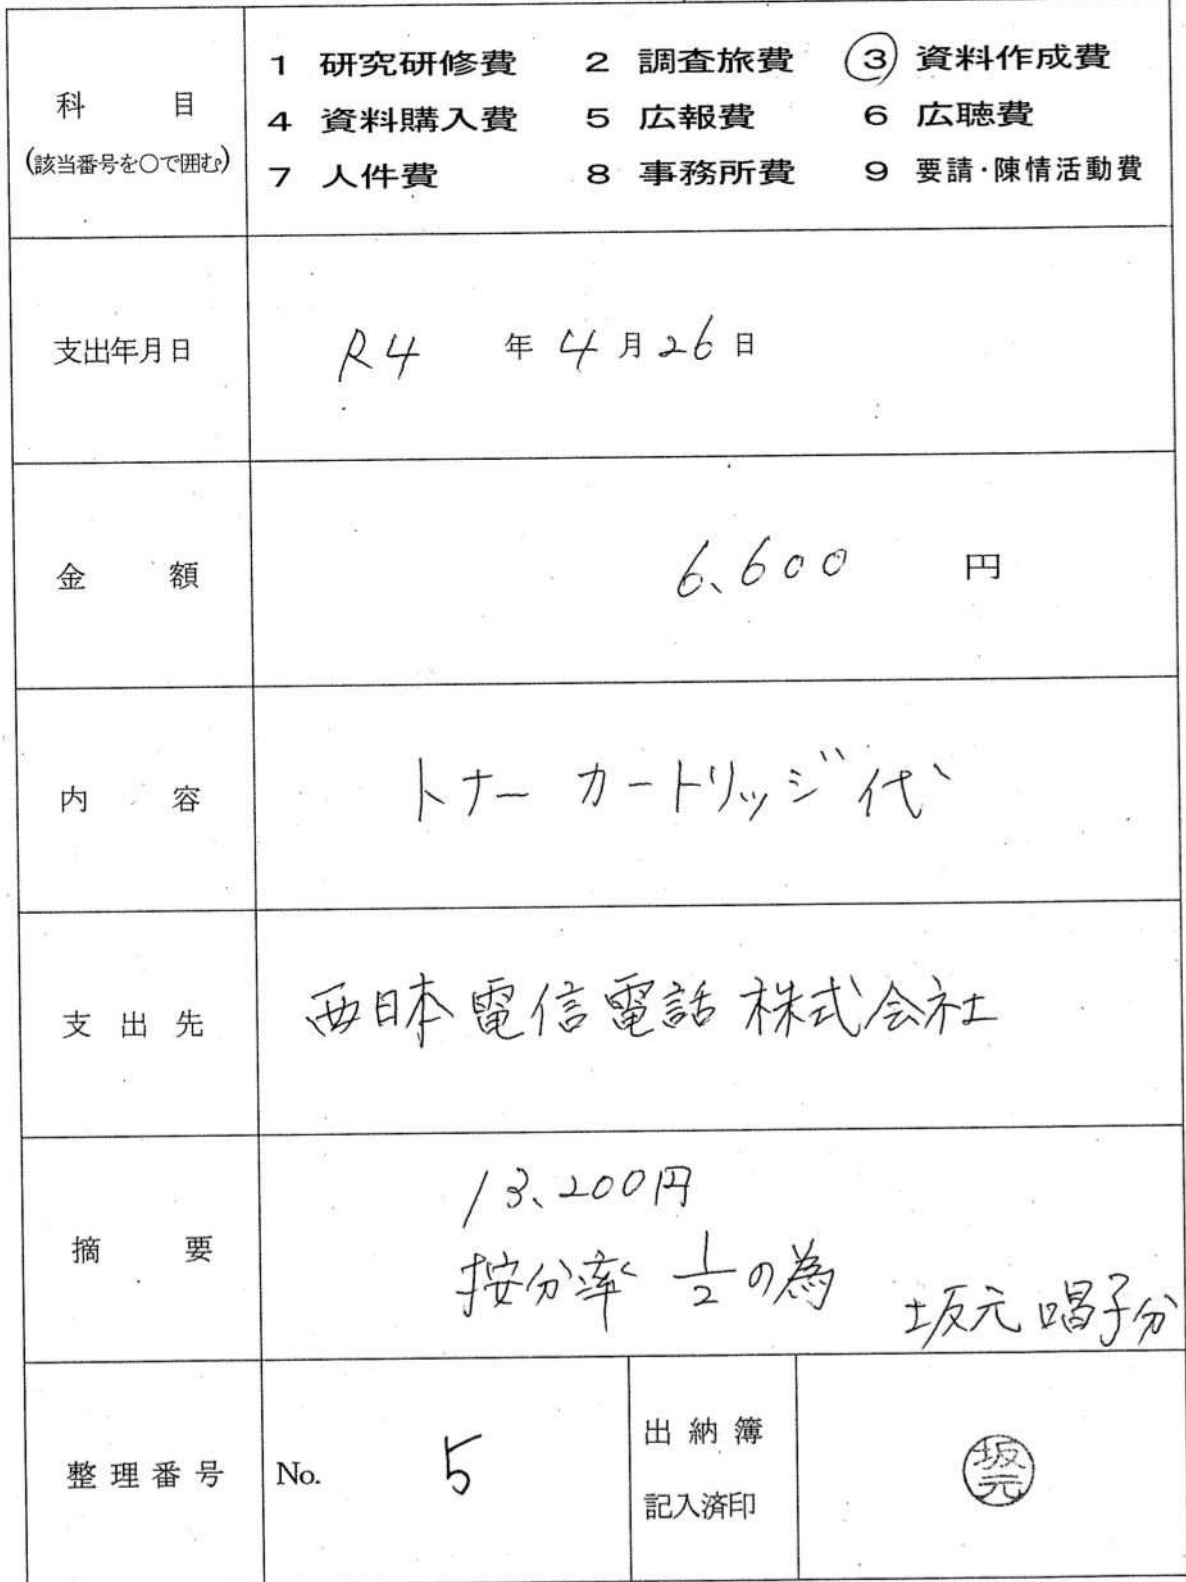 科目
(該当番号を○で囲む)
1 研究研修費 2 調査旅費 ③ 資料作成費
4 資料購入費 5 広報費 6 広聴費
7 人件費 8 事務所費 9 要請・陳情活動費
支出年月日 R4 年 4月26日
金額 6、600 円
内容 トナーカートリッジ代
支出先 西日本電信電話株式会社
摘要
13、200円
按分率 1/2の為
坂元唱子分
整理番号 No. 5
出納簿
記入済印
坂元